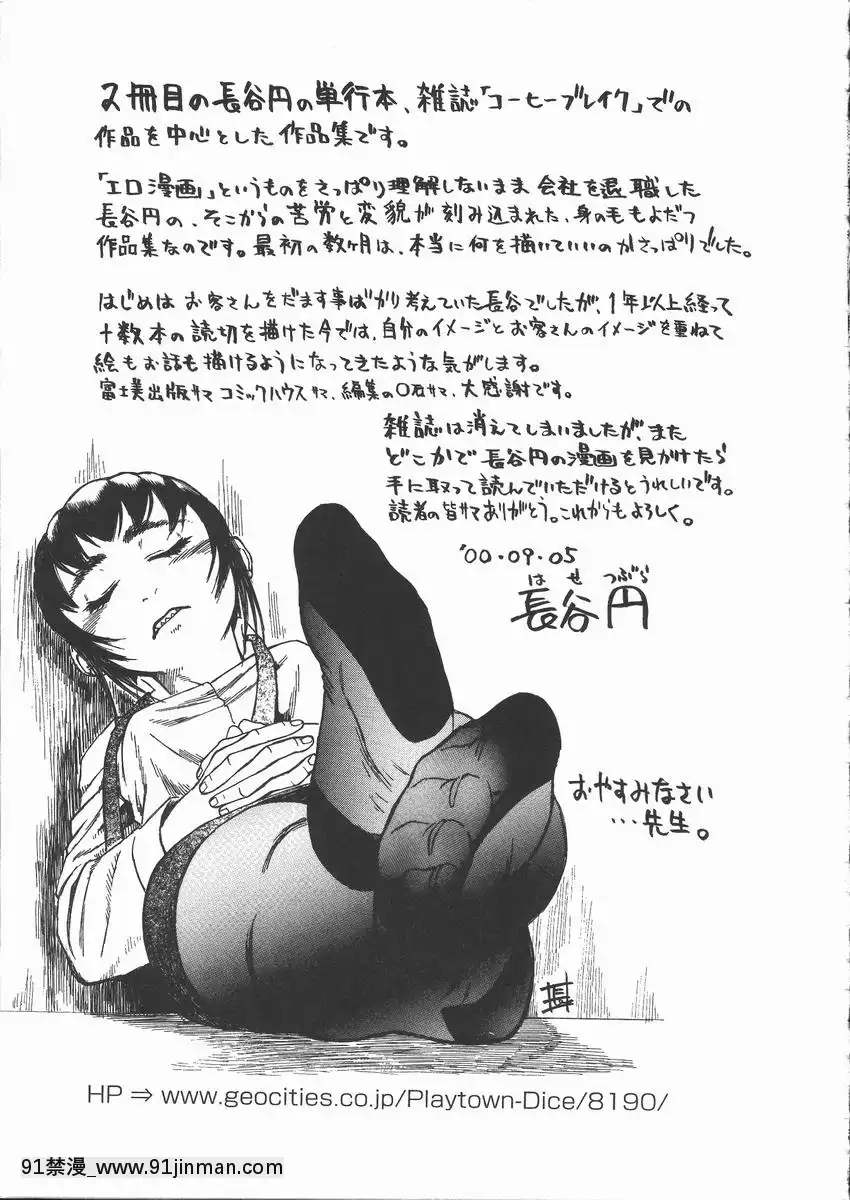 2冊目の長谷円の単行本、雑誌「コーヒーブレイク」での
作品を中心とした作品集です。
「エロ漫画」というものをさっぱり理解しないまま会社を退職した
長谷円の、そこからの苦労と変貌が刻み込まれた、身の毛もよだつ
作品集なのです。最初の数ヶ月は、本当に何を描いていいのかさっぱりでした。
はじめはお客さんをだます事ばかり考えていた長谷でしたが、1年以上経って
十数本の読切を描けた今では、自分のイメージとお客さんのイメージを重ねて
絵もお話も描けるようになってきたような気がします。
富士美出版サマ コミックハウスサマ、編集の〇石サマ、大感謝です。
雑誌は消えてしまいましたが、また
どこかで長谷円の漫画を見かけたら
手に取って読んでいただけるとうれしいです。
読者の皆サマありがとう。これからもよろしく。
'00・09・05
はせつぶら
長谷円
おやすみなさい
…先生。
HP ⇒ www.geocities.co.jp/Playtown-Dice/8190/
91禁漫_www.91jinman.com